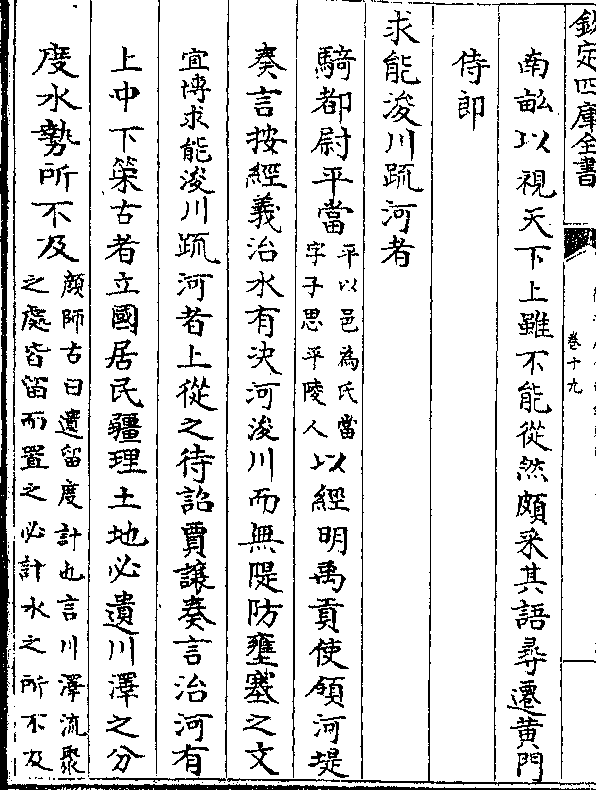 欽定四庫全書
卷十九
南畆以視天下上雖不能從然頗采其語尋遷黄門
侍郎
求能浚川疏河者
騎都尉平當平以邑為氏當字子思平陵人以經明禹貢使領河堤
奏言按經義治水有决河浚川而無隄防壅塞之文
宜博求能浚川疏河者上從之待詔賈讓奏言治河有
上中下策古者立國居民疆理土地必遺川澤之分
度水勢所不及顔師古曰遺留度計也言川澤流聚之處皆留而置之必計水之所不及